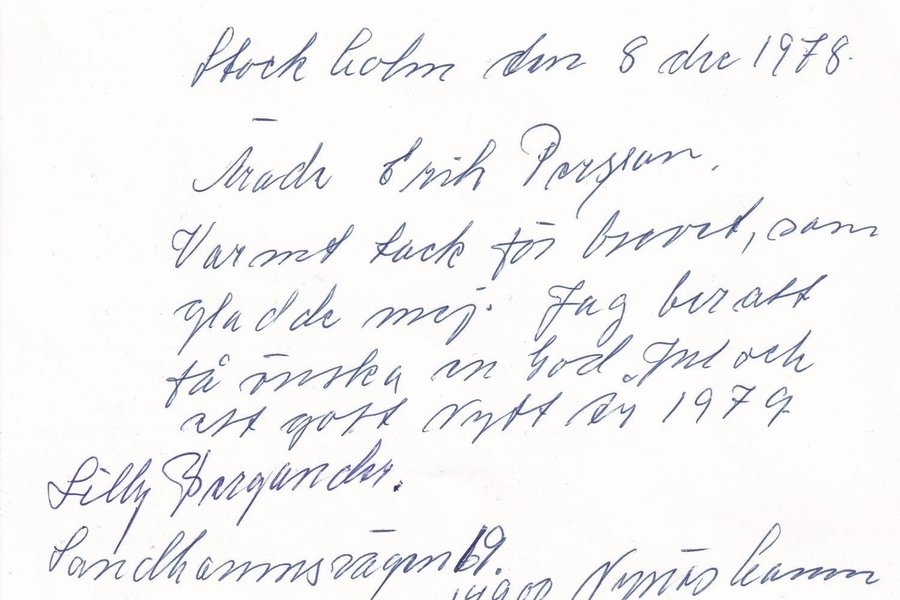 Stockholm den 8 dec 1978.
Ärade Erik Persson.
Varmt tack för brevet, som
gladde mej. Jag ber att
få önska en God Jul och
ett gott Nytt År 1979
Lilly Bergander.
Sandhamnsvägen 69.
14900 Nynäshamn